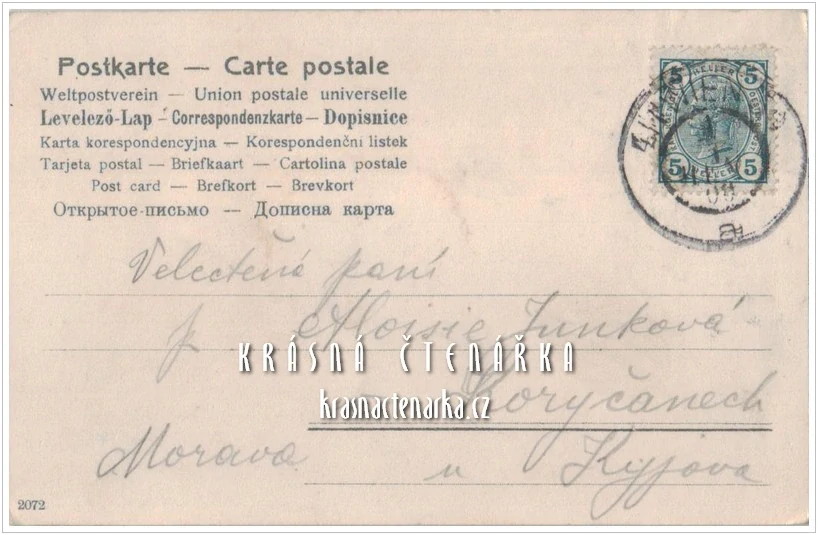 Postkarte — Carte postale
Weltpostverein — Union postale universelle
Levelező-Lap — Correspondenzkarte — Dopisnice
Karta korespondencyjna — Korespondenční listek
Tarjeta postal — Briefkaart — Cartolina postale
Post card — Brefkort — Brevkort
Открытое-письмо — Дописна карта
5 HELLER 5
5 HELLER 5
09
Velectěná paní
p Aloisie Junková
KRÁSNÁ ČTENÁŘKA
krasnactenarka.cz
Koryčanech
Morava u Kyjova
2072